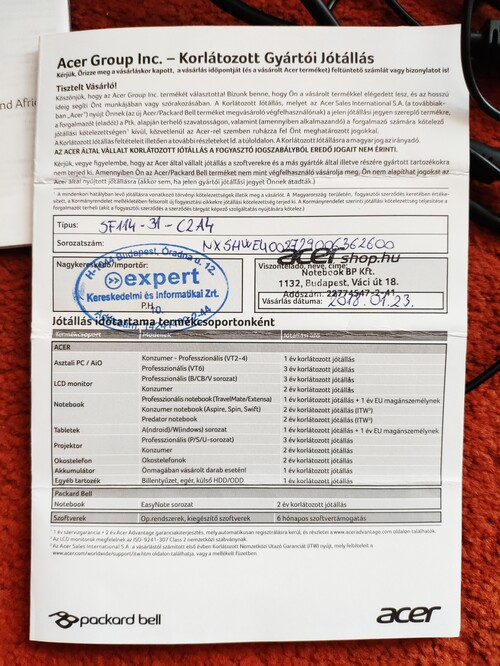 nd Afri
Acer Group Inc. – Korlátozott Gyártói Jótállás
Kérjük, Őrizze meg a vásárláskor kapott, a vásárlás időpontját (és a vásárolt Acer terméket) feltüntető számlát vagy bizonylatot is!
Tisztelt Vásárló!
Köszönjük, hogy az Acer termékét választotta! Bízunk benne, hogy Ön a vásárolt termékkel elégedett lesz, és az hosszú
ideig segíti Önt munkájában vagy szórakozásában. A Korlátozott Jótállás, melyet az Acer Sales International S.A. (a továbbiak-
ban „Acer") nyújt Önnek (az új Acer/Packard Bell terméket megvásárló végfelhasználónak) a jelen jótállási jegyen szereplő termékre,
a forgalmazót (eladót) a Ptk. alapján terhelő szavatosságon, valamint (amennyiben alkalmazandó) a Forgalmazó számára kötelező
jótállási kötelezettségen¹ kívül, közvetlenül az Acer-rel szemben ruházza fel Önt meghatározott jogokkal.
A Korlátozott Jótállás Feltételeit illetően a további részleteket ld. a túloldalon. A Korlátozott Jótállásra a magyar jog az irányadó.
AZ ACER ÁLTAL VÁLLALT KORLÁTOZOTT JÓTÁLLÁS A FOGYASZTÓ JOGSZABÁLYBÓL EREDŐ JOGAIT NEM ÉRINTI.
Kérjük, vegye figyelembe, hogy az Acer által vállalt jótállás a szoftverekre és a más gyártók által illetve részére gyártott tartozékokra
nem terjed ki. Amennyiben Ön az Acer/Packard Bell terméket nem mint végfelhasználó vásárolja meg, Ön nem alapíthat jogokat az
Acer által nyújtott jótállásra (akkor sem, ha jelen gyártói jótállási jegyet Önnek átadták.)
Típus: SF114-31-C214
Sorozatszám: NXSHWEU002729006362600
Nagykereskedő/Importőr:
H- Budapest, Óradna u. 12.
expert
Kereskedelmi és Informatikai Zrt.
10.
P.H.
Viszonteladó, neve, címe:
acershop.hu
Notebook BP Kft.
1132, Budapest, Váci út 18.
Adószám: 22774547-2-41
Vásárlás dátuma: 2018.01.23.
Jótállás időtartama termékcsoportonként
Termékcsoport Modellek Jótállási idő
ACER
Asztali PC / AiO Konzumer – Professionális (VT2-4) 1 év korlátozott jótállás
Professionális (VT6) 3 év korlátozott jótállás
LCD monitor Professionális (B/CB/V sorozat) 3 év korlátozott jótállás
Konzumer 2 év korlátozott jótállás
Notebook Professionális notebook (TravelMate/Extensa) 1 év korlátozott jótállás + 1 év EU magánszemélynek
Konzumer notebook (Aspire, Spin, Swift) 2 év korlátozott jótállás (ITW³)
Predator notebook 2 év korlátozott jótállás (ITW³)
Tabletek A(ndroid)/W(indows) sorozat 1 év korlátozott jótállás + 1 év EU magánszemélynek
Projektor Professionális (P/S/U-sorozat) 3 év korlátozott jótállás
Konzumer 2 év korlátozott jótállás
Okostelefon Okostelefonok 2 év korlátozott jótállás
Akkumulátor Önmagában vásárolt darab esetén! 1 év korlátozott jótállás
Egyéb tartozék Billentyűzet, egér, külső HDD/ODD 1 év korlátozott jótállás
Packard Bell
Notebook EasyNote sorozat 2 év korlátozott jótállás
Szoftverek Op.rendszerek, kiegészítő szoftverek 6 hónapos szoftvertámogatás
packard bell
acer